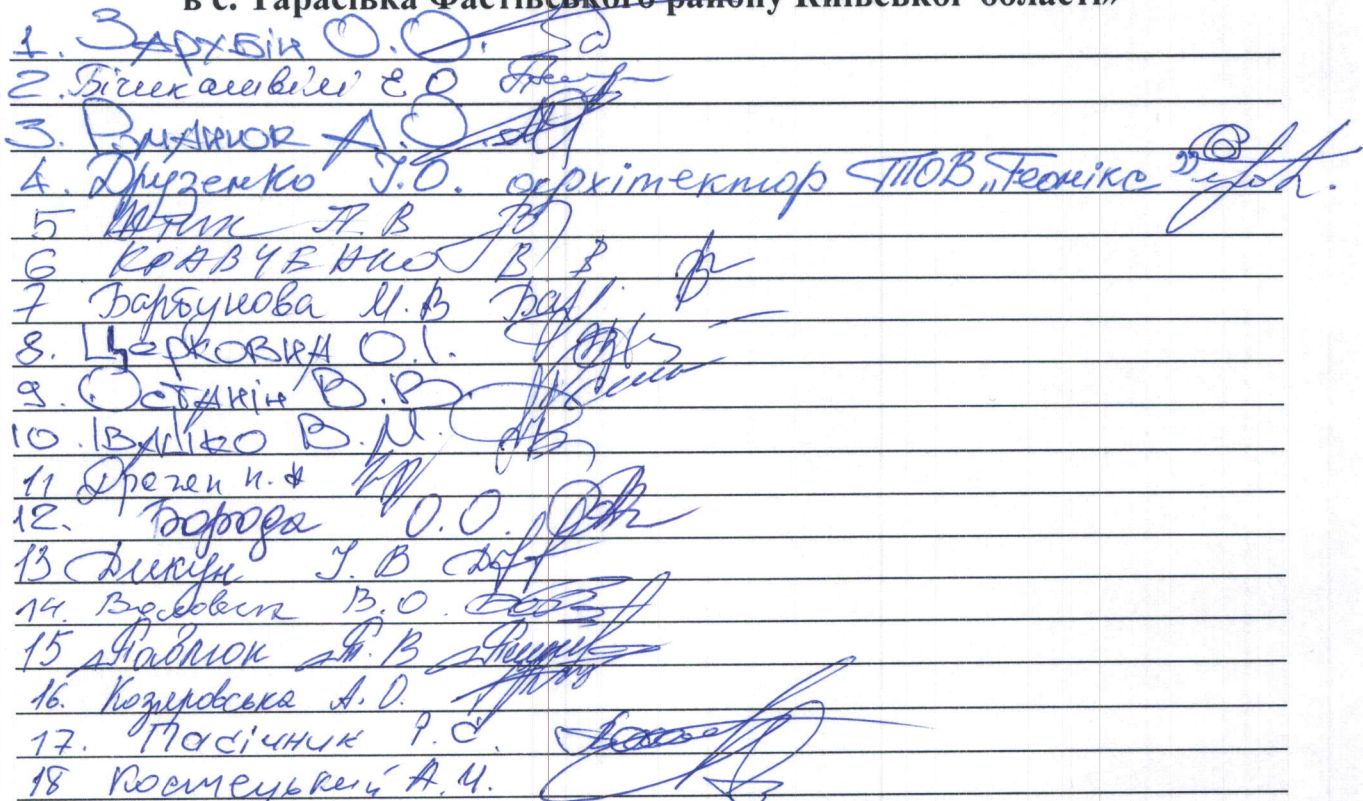 в с. Тарасівка Фастівського району Київської області»
1. Зархбін О.О.
2. Бічикашвілі Є О
3. А.О.
4. Друзенко І.О. архітектор ТОВ „Геонікс”
5 П. В
6 КРАВЧЕНКО В В
7 Барбунова М.В
8. Церковна О.І.
9. Останін В.В.
10. В.М.
11
12. Борода О.О.
13 Дикун І. В
14. В.О.
15 Павлюк Т. В
16. Козяровська А.О.
17. Пасічник Р.С.
18 Костецький А.М.